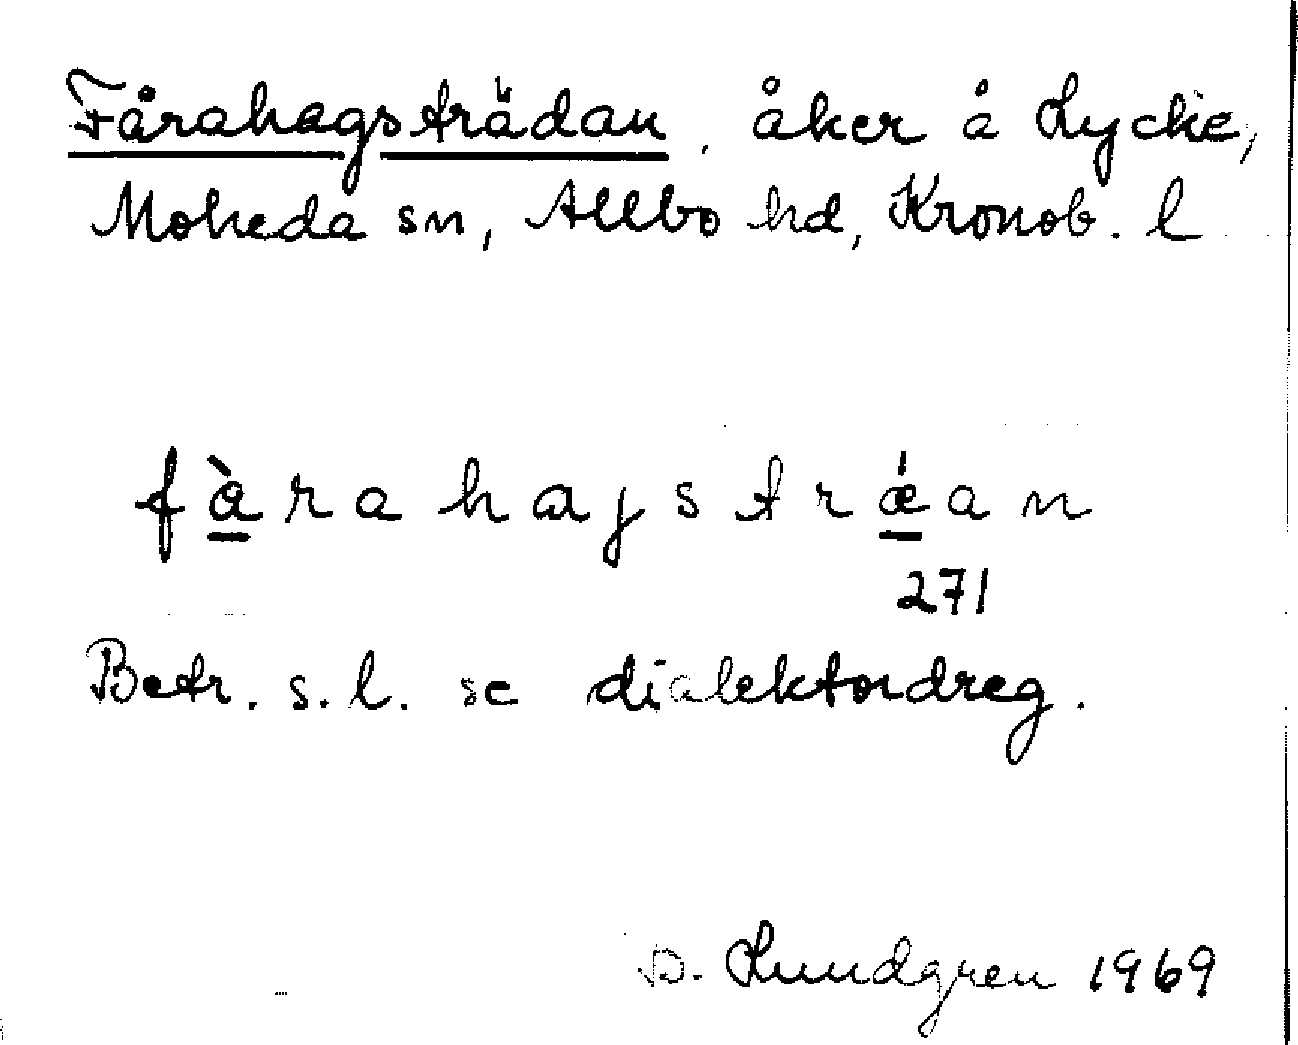 Fårahagsträdan, åker å Lycke,
Moheda sn, Allbo hd, Kronob. l
fàrahajstrǽan
271
Betr. s.l. se dialektordreg.
D. Lundgren 1969